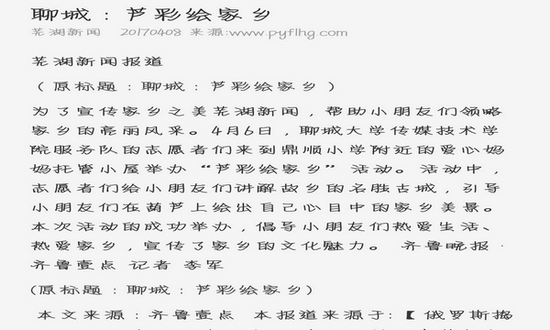 聊城：芦彩绘家乡
芜湖新闻 20170408 来源:www.pyflhg.com
芜湖新闻报道
（原标题：聊城：芦彩绘家乡）
为了宣传家乡之美芜湖新闻，帮助小朋友们领略
家乡的亮丽风采。4月6日，聊城大学传媒技术学
院服务队的志愿者们来到鼎顺小学附近的爱心妈
妈托管小屋举办“芦彩绘家乡”活动。活动中，
志愿者们给小朋友们讲解故乡的名胜古城，引导
小朋友们在葫芦上绘出自己心目中的家乡美景。
本次活动的成功举办，倡导小朋友们热爱生活、
热爱家乡，宣传了家乡的文化魅力。 齐鲁晚报·
齐鲁壹点 记者 李军
(原标题：聊城：芦彩绘家乡)
本文来源：齐鲁壹点 本报道来源于:【俄罗斯揭